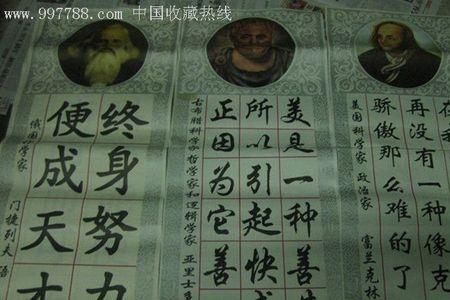 www.997788.com 中国收藏热线
终身努力
便成天才
俄国化学家 门捷列夫语
美是一种善
所以引起快
正因为它善
古希腊科学家哲学家和逻辑学家 亚里士多
再没有一种像克
骄傲那么难的了
美国科学家 政治家 富兰克林